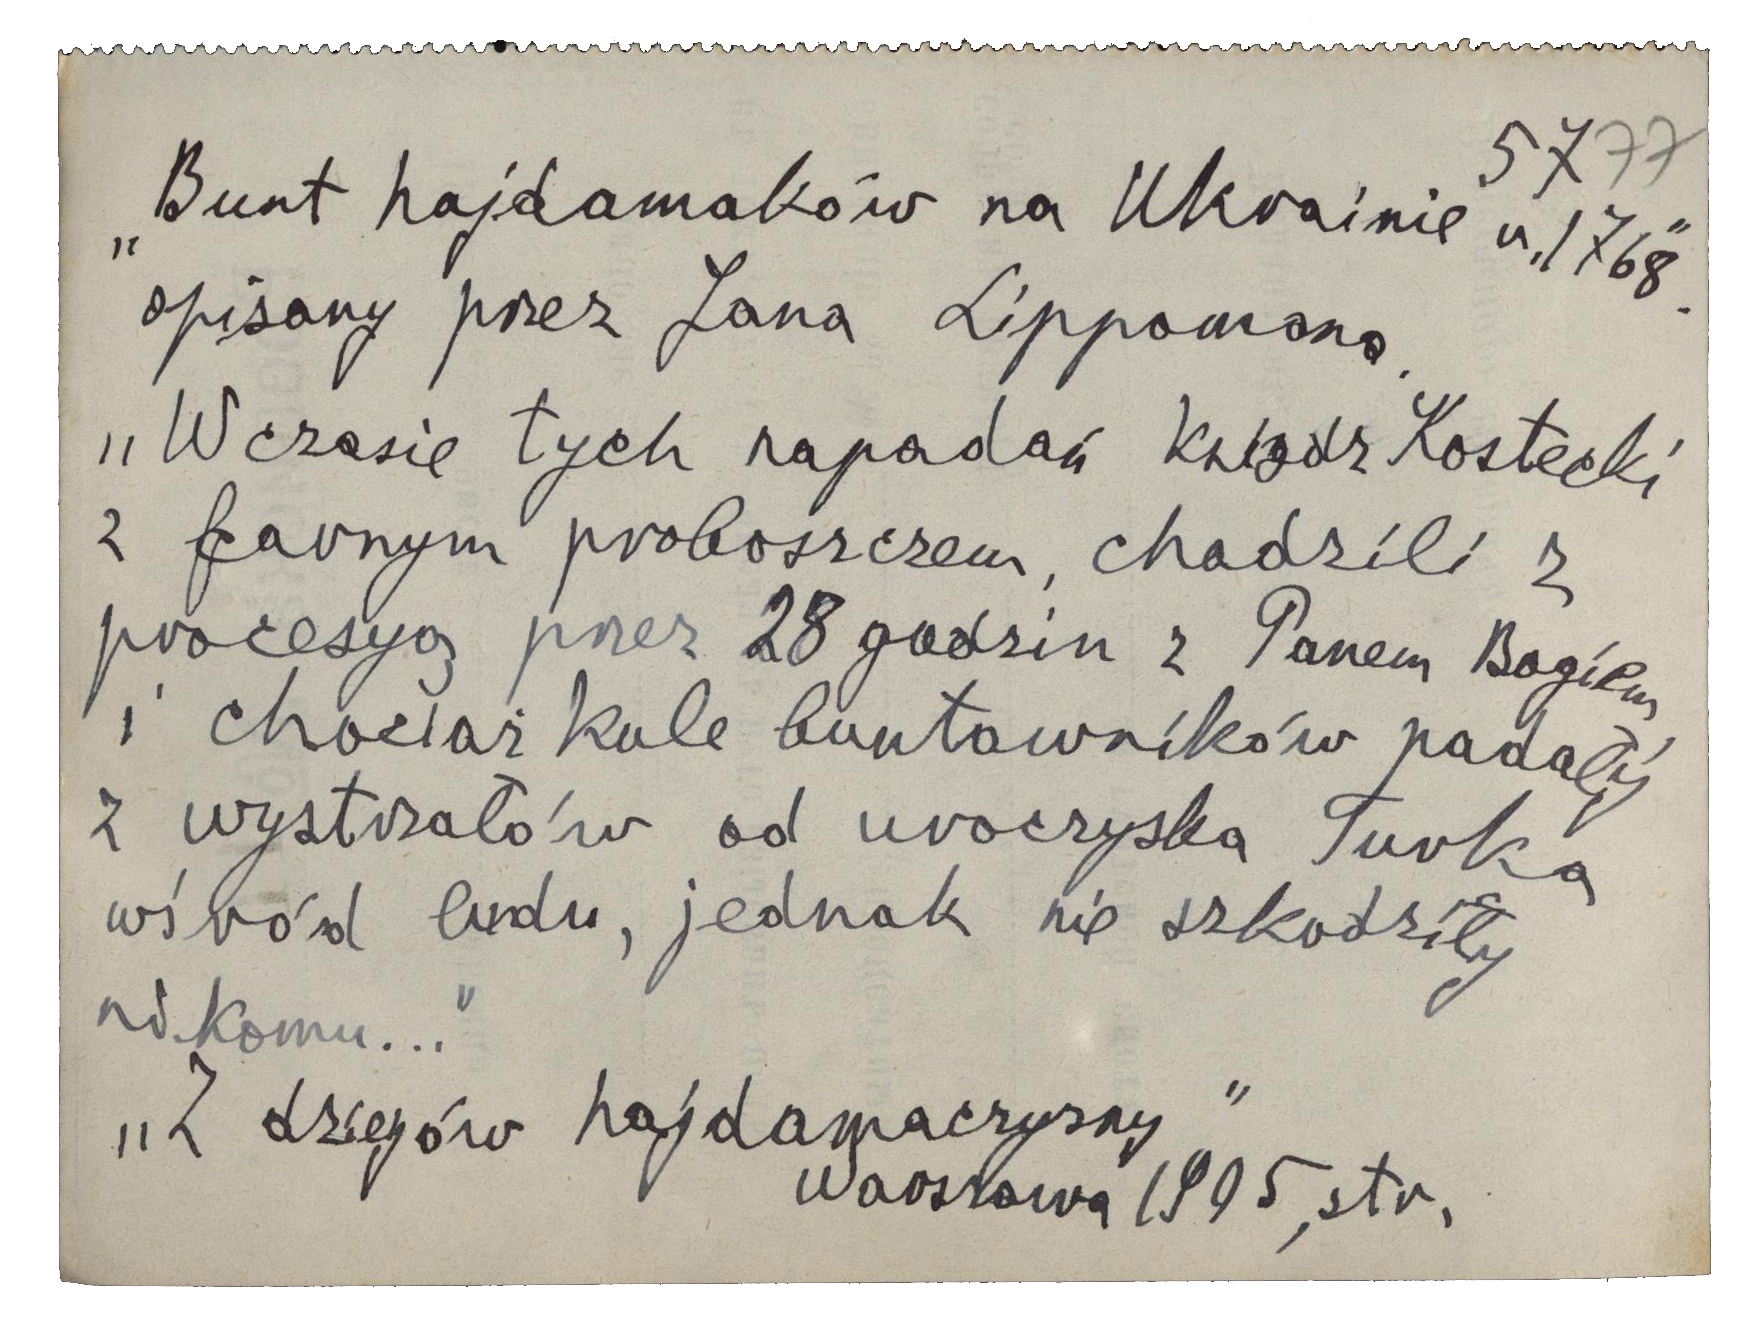 57 77
„Bunt hajdamaków na Ukrainie w. 1768".
opisany przez Jana Lippomana.
„W czasie tych napadań ksiądz Kostecki
z farnym proboszczem, chodzili z
procesyą przez 28 godzin z Panem Bogiem,
i chociaż kule buntowników padały
z wystrzałów od uroczyska Turka
wśród ludu, jednak nie szkodziły
nikomu..."
„Z dziejów hajdamaczyzny"
Warszawa 1905, str.